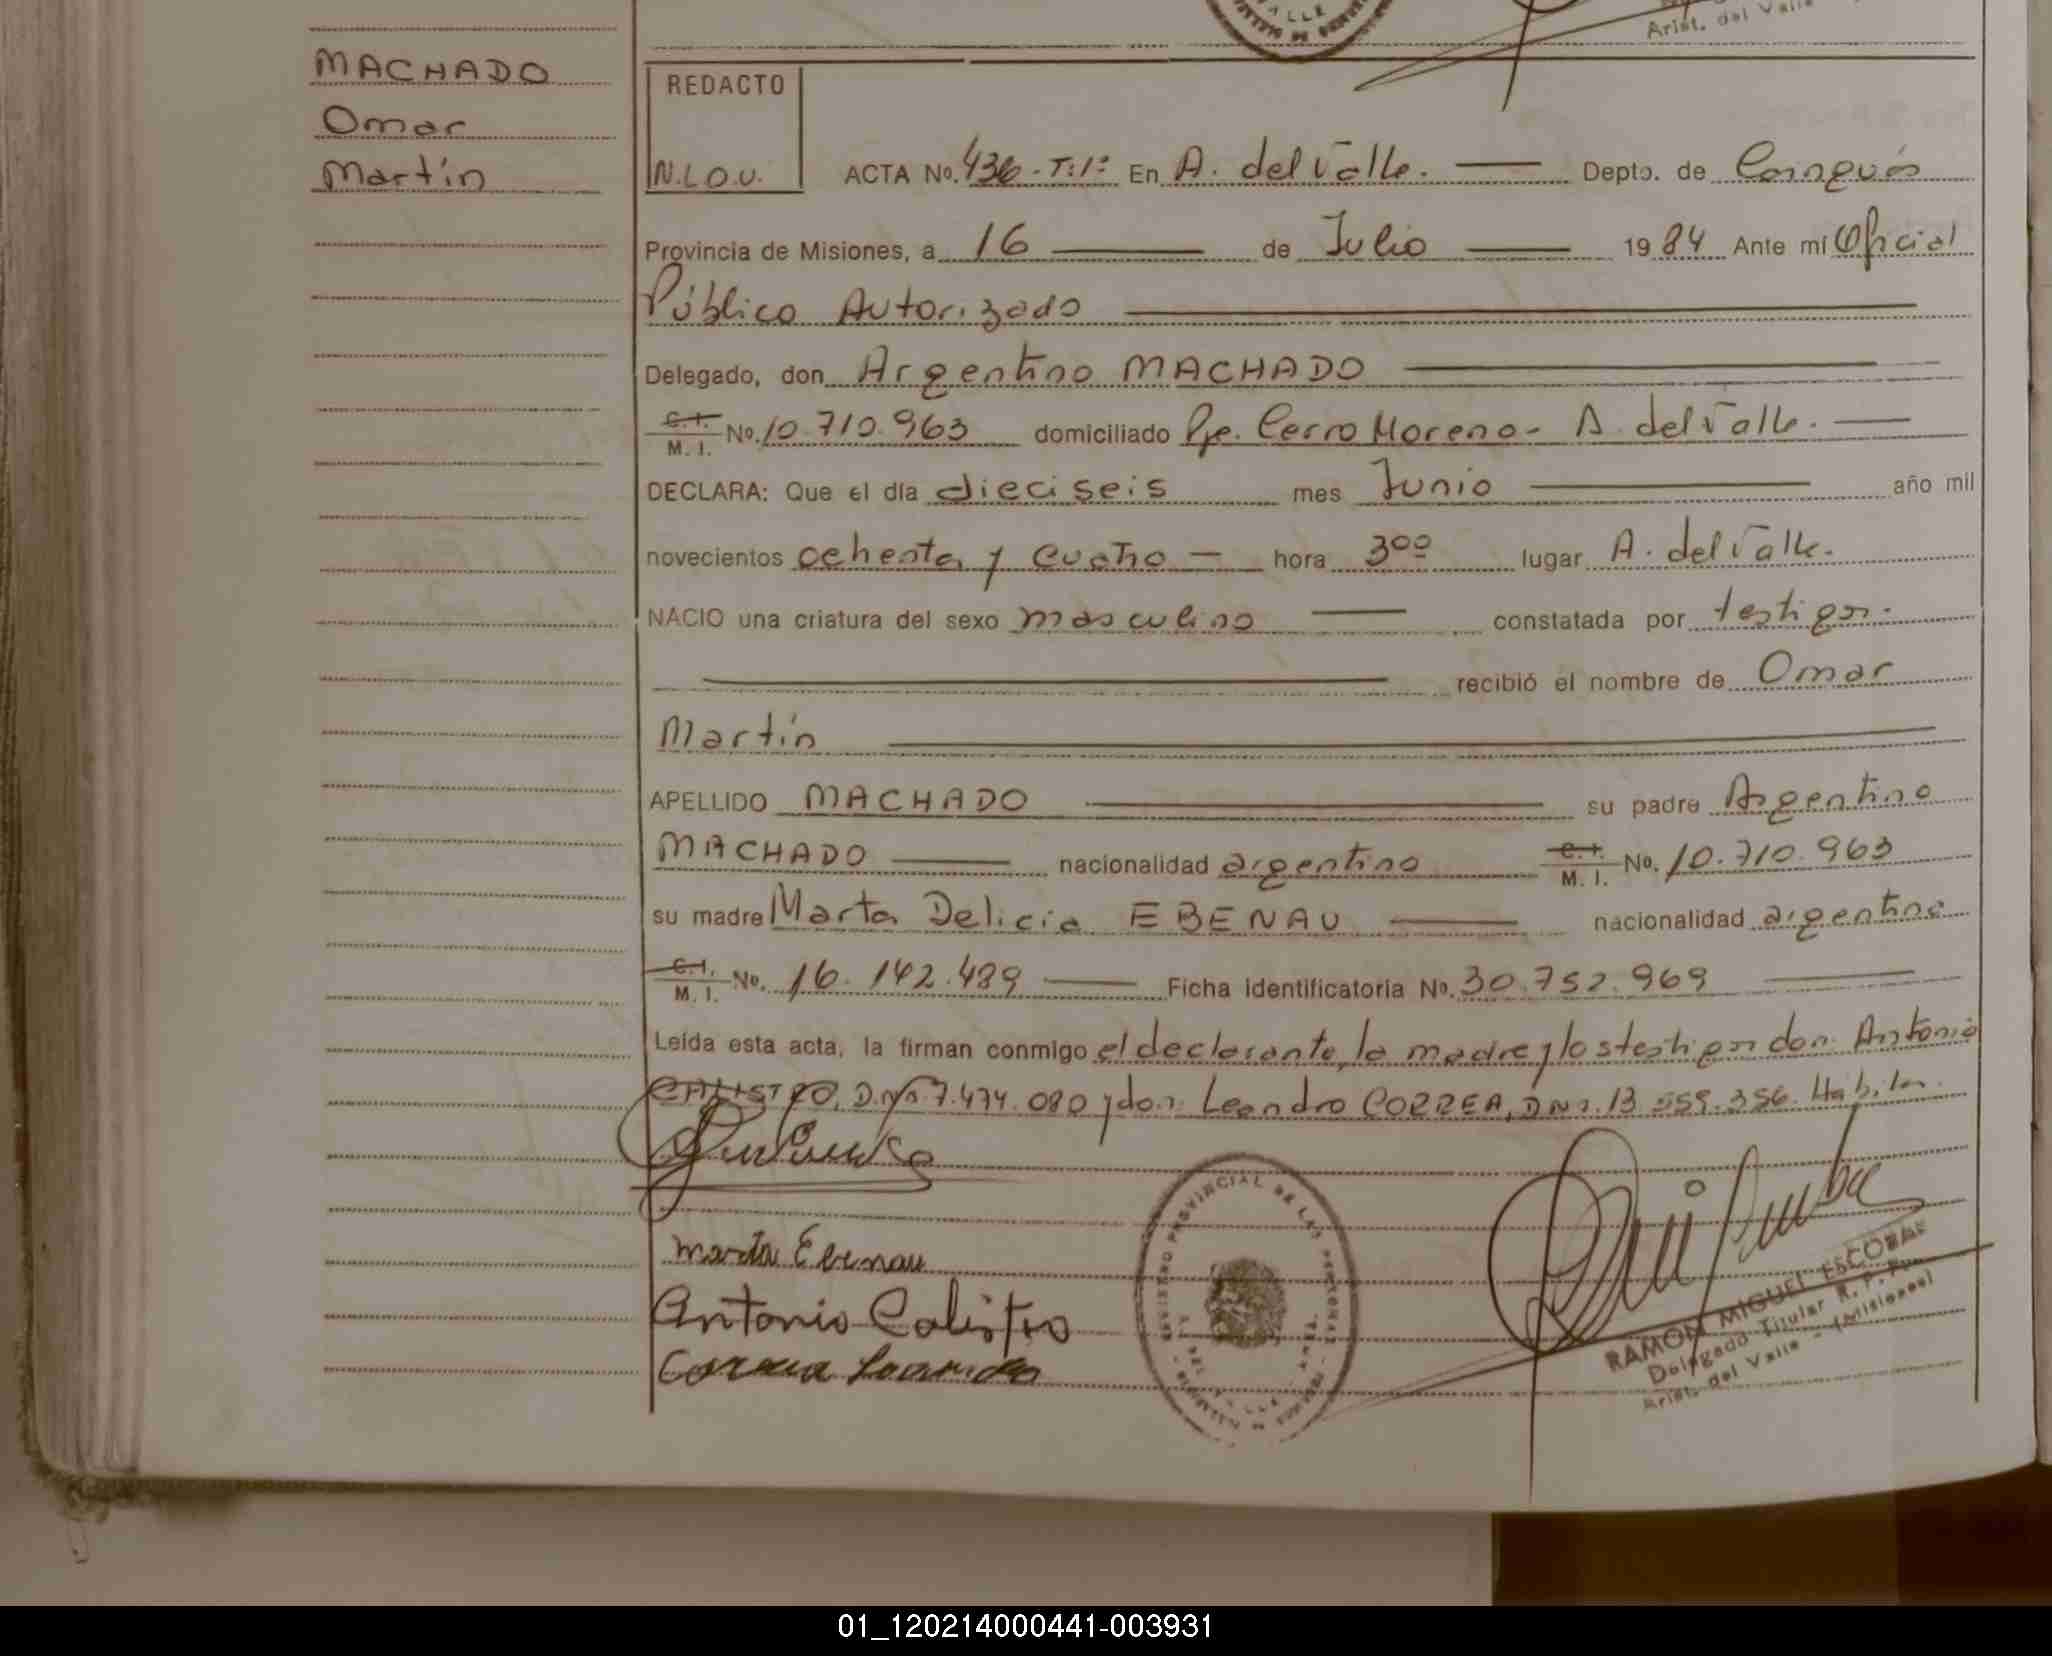 VALLE
Arist. del Valle
MACHADO
Omar
Martín
REDACTO
N.L.O.V.
ACTA No. 436 - T: 1º En A. del Valle. Depto. de Cainguás
Provincia de Misiones, a 16 de Julio 1984 Ante mí Oficial
Público Autorizado
Delegado, don Argentino MACHADO
C.I. M.I. No. 10.710.963 domiciliado Pje. Cerro Moreno - A. del Valle.
DECLARA: Que el día dieciseis mes Junio año mil
novecientos ochenta y cuatro hora 3 00 lugar A. del Valle.
NACIO una criatura del sexo masculino constatada por testigos.
recibió el nombre de Omar
Martín
APELLIDO MACHADO su padre Argentino
MACHADO nacionalidad argentino C.I. M.I. No. 10.710.963
su madre Marta Delicia EBENAU nacionalidad argentina
C.I. M.I. No. 16.142.489 Ficha identificatoria No. 30.752.969
Leída esta acta, la firman conmigo el declarante, la madre y los testigos don Antonio
CALISTRO, 7.474.080 y don Leandro CORREA, 13.559.356.
Marta Ebenau
Antonio Calistro
Correa Leandro
REGISTRO PROVINCIAL DE LAS PERSONAS
RAMON MIGUEL ESCOBAR
Delegado Titular R. P. P.
Arist. del Valle - (Misiones)
01_120214000441-003931